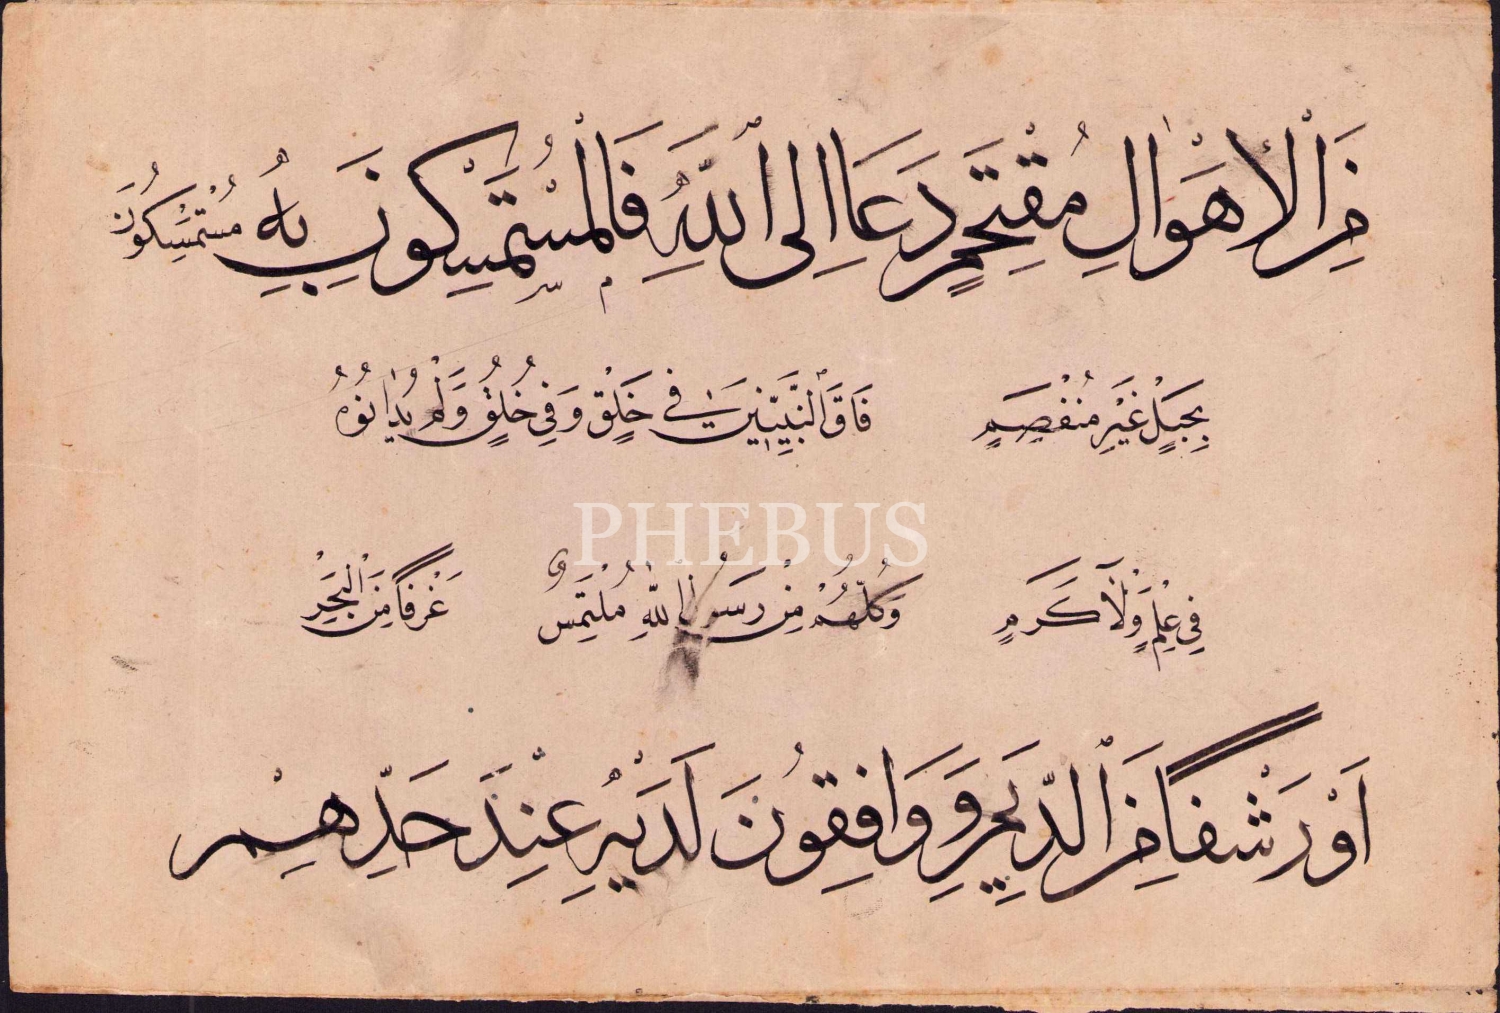 مِنَ الْاَهْوَالِ مُقْتَحِمٍ دَعَا اِلَى اللّٰهِ فَالْمُسْتَمْسِكُونَ بِهُ مُسْتَمْسِكُونَ
بِحَبْلٍ غَيْرِ مُنْفَصِمٍ فَاقَ النَّبِيّٖنَ فٖي خَلْقٍ وَفٖي خُلُقٍ وَلَمْ يُدَانُوهُ
PHEBUS
فٖي عِلْمٍ وَلَا كَرَمٍ وَكُلُّهُمْ مِنْ رَسُولِ اللّٰهِ مُلْتَمِسٌ غَرْفًا مِنَ الْبَحْرِ
اَوْ رَشْفًا مِنَ الدِّيَمِ وَوَاقِفُونَ لَدَيْهِ عِنْدَ حَدِّهِمْ